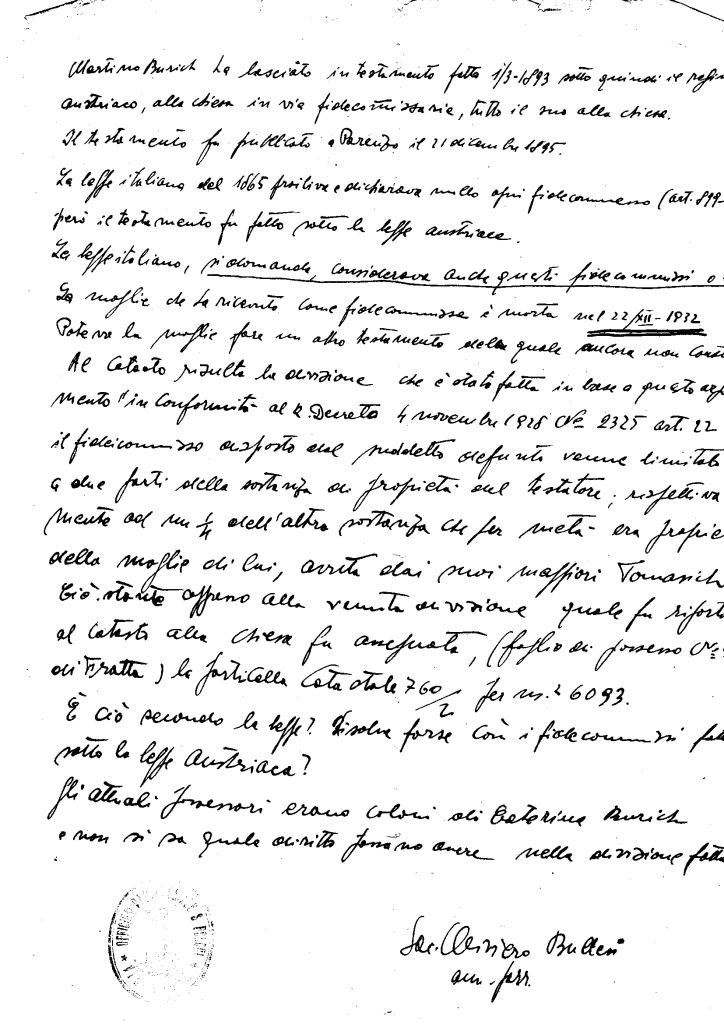 Martino Burich ha lasciato in testamento fatto 1/3-1893 sotto quindi il
austriaco, alla chiesa in via fidecomissaria, tutto il suo alla chiesa.
Il testamento fu pubblicato a Parenzo il 21 dicembre 1895.
La legge italiana del 1865 proibiva e dichiarava nullo ogni fidecommesso (art. 899-
però il testamento fu fatto sotto la legge austriaca.
La legge italiana, si domanda, considerava anche questi fidecommissi o
La moglie che ha ricevuto come fidecommissa è morta nel 22/XII-1932
Poteva la moglie fare un altro testamento della quale ancora non
Al Catasto risulta la divisione che è stata fatta in base a questo
mento "in conformità al R. Decreto 4 novembre 1928 No 2325 art. 22
il fideicommisso disposto dal suddetto defunto venne limitato
a due parti della sostanza di propietà del testatore; rispettiva
mente ad un 1/4 dell'altra sostanza che per metà era
della moglie di lui, avuta dai suoi maggiori Tomasich
Ciò stante appena alla venuta divisione quale fu
al Catasto alla chiesa fu assegnata, (foglio di possesso No
di Fratta) la particella Catastale 760/2 per m.2 6093.
È ciò secondo la legge? Risolve forse così i fidecommissi
sotto la legge Austriaca?
Gli attuali possessori erano coloni di Caterina Burich
e non si sa quale diritto possano avere nella divisione fatta
Sac. Oliviero
am. parr.